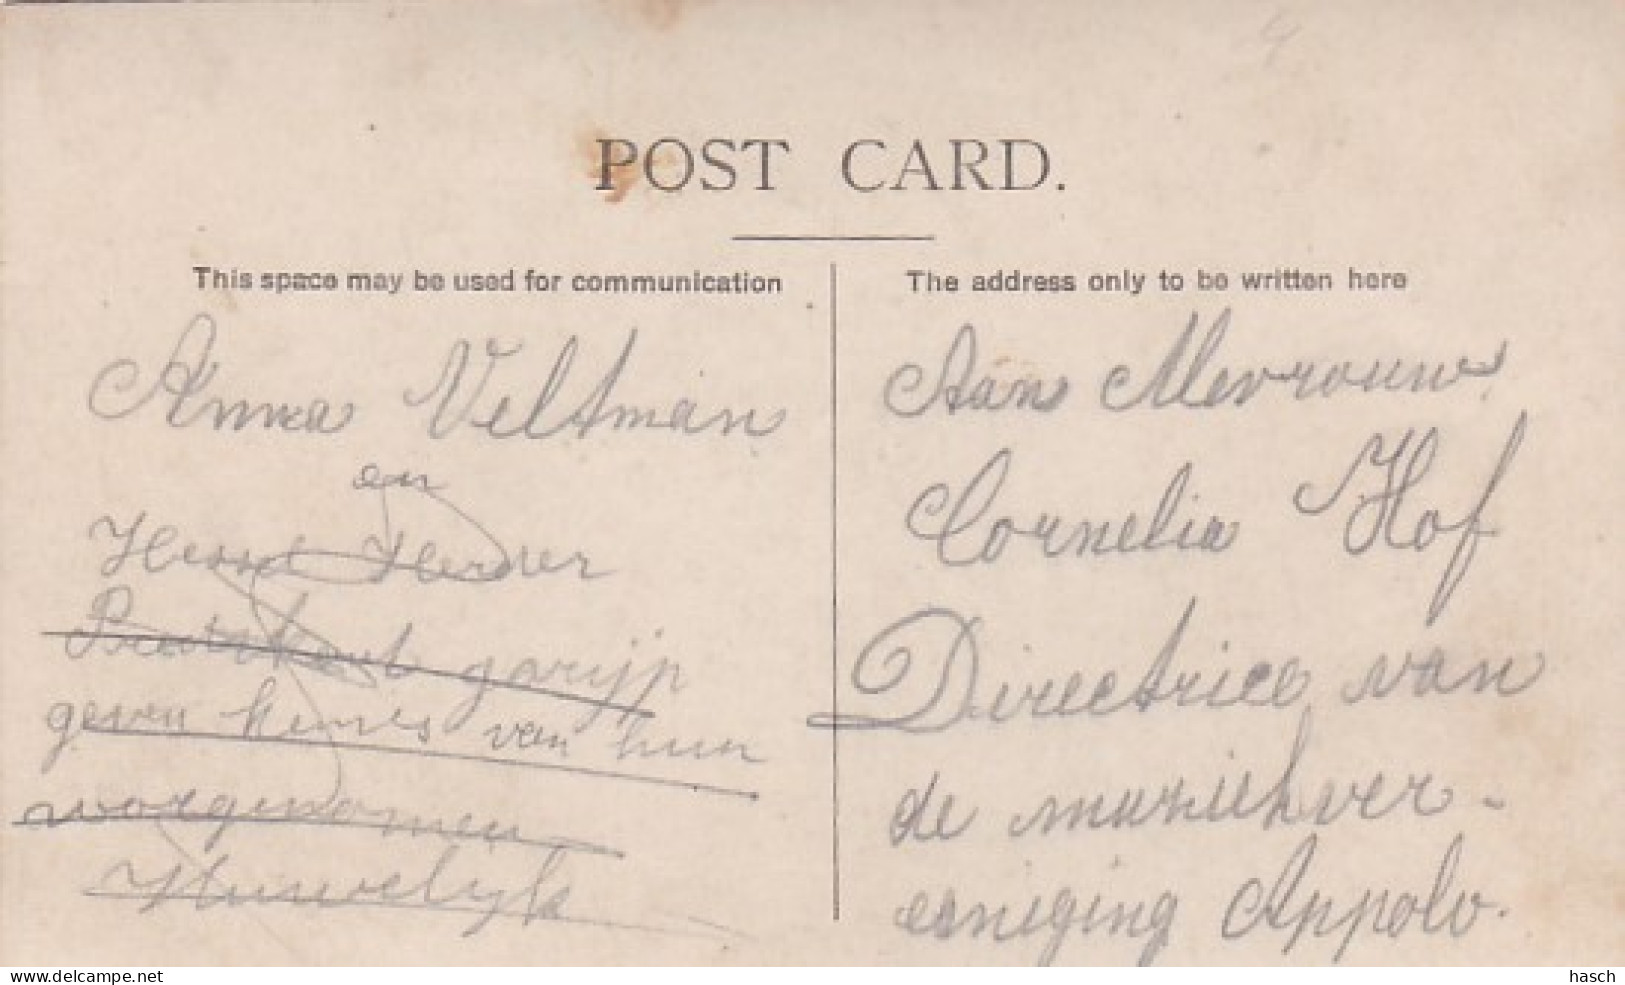 POST CARD.
This space may be used for communication
The address only to be written here
Anna Veltman
en
geven kennis van hun
voorgenomen
Huwelijk
Aan Mevrouw
Cornelia Hof
Directrice van
de muziekver-
eeniging Appolo.
www.delcampe.net
hasch